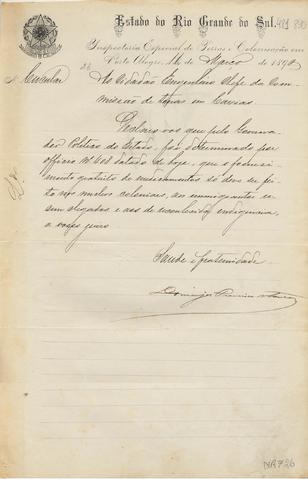 Estado do Rio Grande do Sul.
Inspectoria Especial de Terras e Colonisação em
Porto Alegre, de Março de 1890
Nº Circular
Ao Cidadão Engenheiro Chefe da Com-
missão de terras em Caxias
Declaro vos que pelo Governa-
dor Politico do Estado, foi determinado por
officio Nº datado de hoje, que o forneci-
mento gratuito de medicamentos só deve ser fei-
to nos nucleos coloniaes, aos immigrantes re-
cem chegados e aos de reconhecida indigencia,
a vosso juizo
Saude e fraternidade
NA726